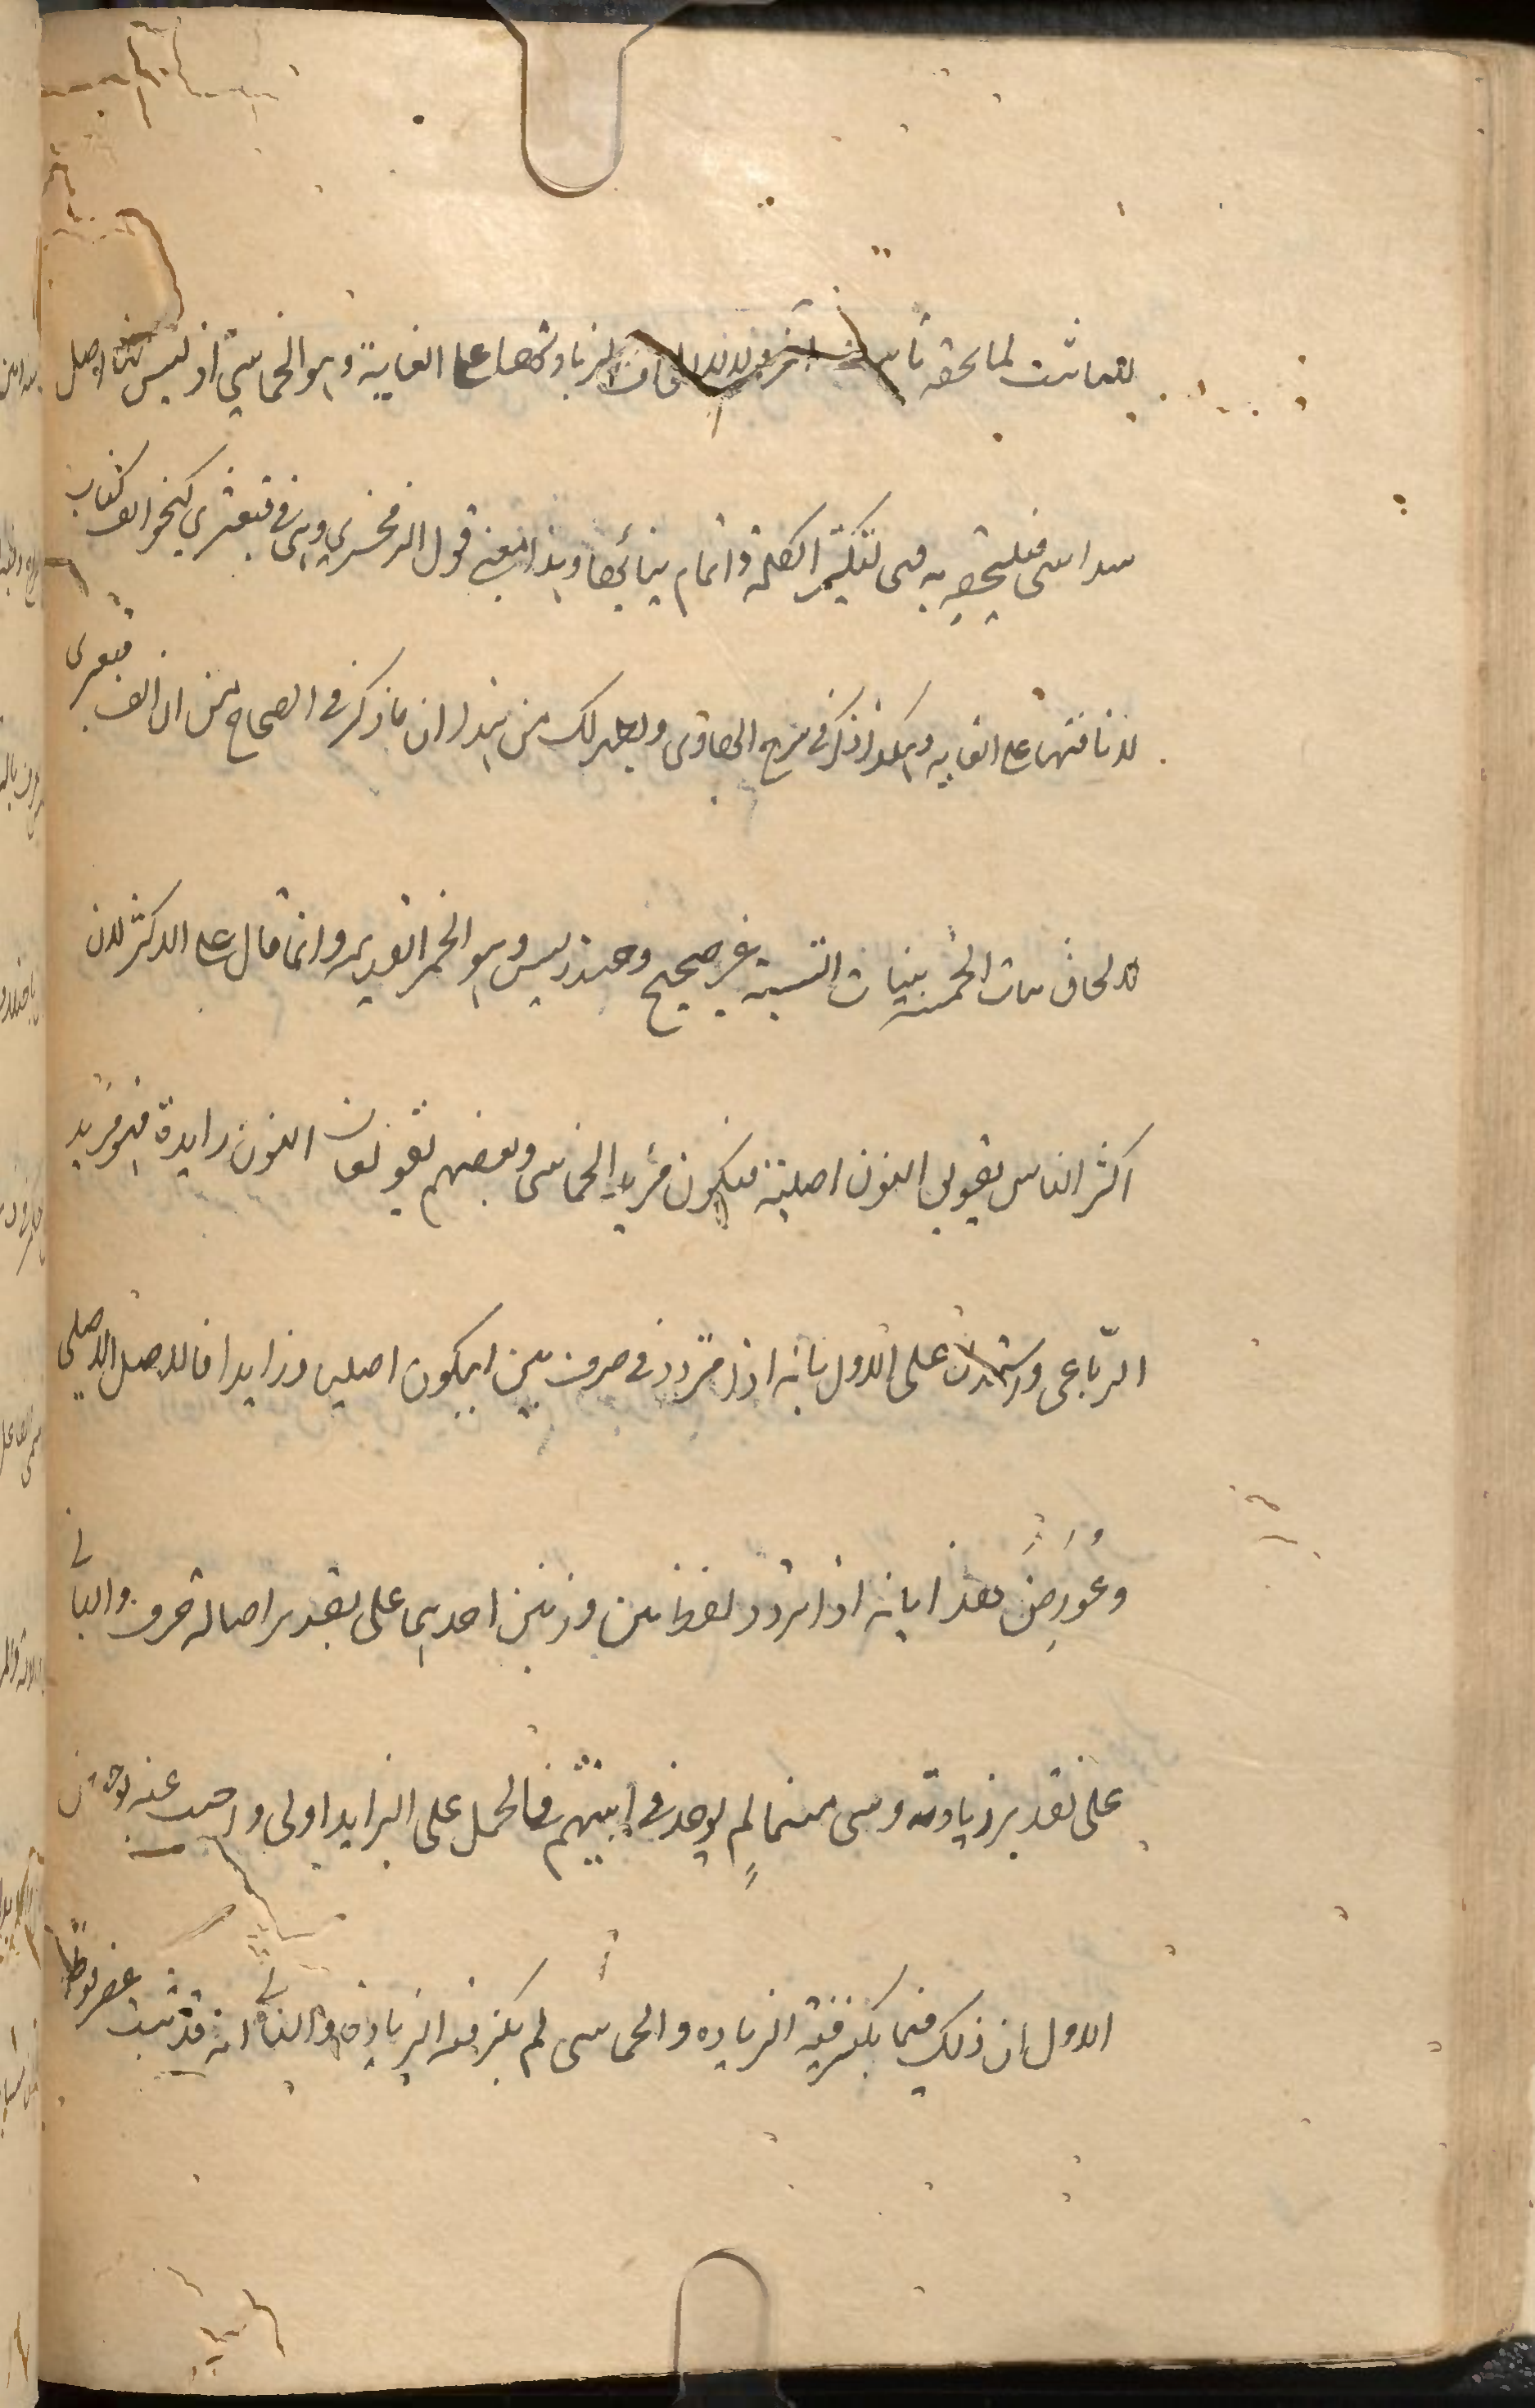 لما لحقه تاء لزيادتها على الغاية وهو الخماسي اذ ليس لنا اصل
سداسي فيلحق به فهى لتكثير الكلمة واتمام بنائها وهذا معنى قول الزمخشرى وهى فى قبعثرى كنحو الف كتاب
لانافتها على الغاية وهكذا ذكر فى شرح الهادى ويظهر لك من هذا ان ما ذكر فى الصحاح من ان الف قبعثرى
للالحاق ببنات الخمسة ببنات الستة غير صحيح وخندريس وهو الخمر القديم وانما قال على الاكثر لان
اكثر الناس يقول النون اصلية فيكون مزيد الخماسى وبعضهم يقولون النون زايدة فهو مزيد
الرّباعى على الاول بانه اذا تردد فى حرف بين ان يكون اصليا وزايدا فالاصل الاصلى
وعُورِضَ هذا بانه اذا تردد لفظ بين وزنين احدهما على تقدير اصالة حرف والثانى
على تقدير زيادته وهى منهما لم يوجد فى ابنيتهم فالحمل على الزايد اولى واجيب عنه
الاول ان ذلك فيما يكثر فيه الزياده والخماسى لم يكثر فيه الزيادة والثانى انه قد ثبت عضرفوط